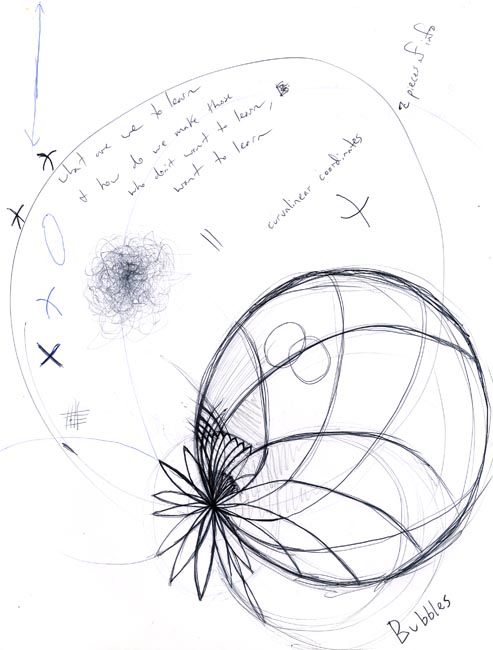 2 pieces of info
what are we to learn
& how do we make those
who don't want to learn,
want to learn
curvalinear coordinates
Bubbles